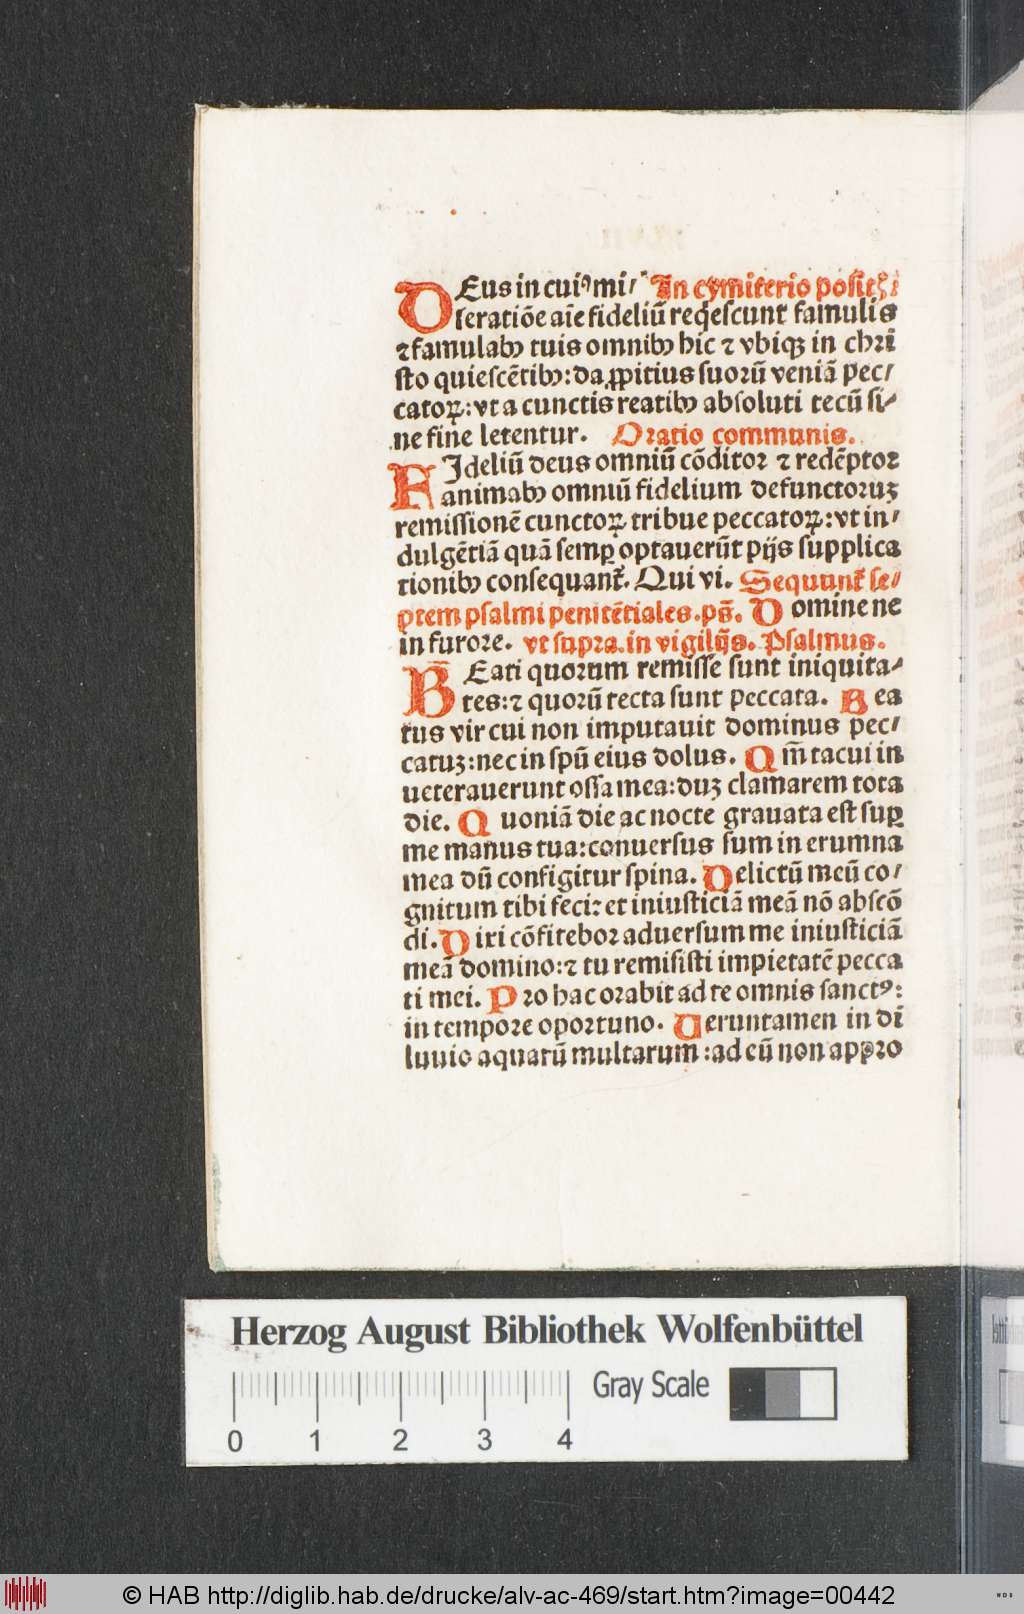 DEus in cuiꝰ mi⸗ In cymiterio positꝭ:
seratiõe aĩe fideliũ reqͥescunt famulis
⁊ famulabꝫ tuis omnibꝫ hic ⁊ vbiqꝫ in chri
sto quiescẽtibꝫ: da ꝓpitius suorũ veniã pec⸗
catoꝝ: vt a cunctis reatibꝫ absoluti tecũ si⸗
ne fine letentur. Oratio communis.
FIdeliũ deus omniũ cõditor ⁊ redẽptor
animabꝫ omniũ fidelium defunctoruꝫ
remissionẽ cunctoꝝ tribue peccatoꝝ: vt in⸗
dulgẽtiã quã semꝑ optauerũt pijs supplica
tionibꝫ consequant᷑. Qui vi. Sequunt᷑ se⸗
ptem psalmi penitẽtiales. ps̃. Domine ne
in furore. vt supra. in vigilijs. Psalmus.
BEati quorum remisse sunt iniquita⸗
tes: ⁊ quorũ tecta sunt peccata. Bea
tus vir cui non imputauit dominus pec⸗
catuꝫ: nec in spũ eius dolus. Qm̃ tacui in
ueterauerunt ossa mea: duꝫ clamarem tota
die. Quoniã die ac nocte grauata est suꝑ
me manus tua: conuersus sum in erumna
mea dũ configitur spina. Delictũ meũ co⸗
gnitum tibi feci: et iniusticiã meã nõ abscõ
di. Dixi cõfitebor aduersum me iniusticiã
meã domino: ⁊ tu remisisti impietatẽ pecca
ti mei. Pro hac orabit ad te omnis sanctꝰ:
in tempore oportuno. Veruntamen in di
luuio aquarũ multarum: ad eũ non appro
Herzog August Bibliothek Wolfenbüttel
Gray Scale
0 1 2 3 4
© HAB http://diglib.hab.de/drucke/alv-ac-469/start.htm?image=00442